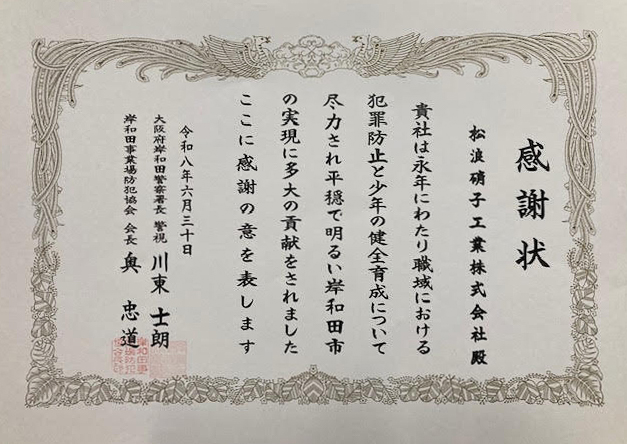 感謝状
松浪硝子工業株式会社殿
貴社は永年にわたり職域における
犯罪防止と少年の健全育成について
尽力され平穏で明るい岸和田市
の実現に多大の貢献をされました
ここに感謝の意を表します
令和八年六月三十日
大阪府岸和田警察署長 警視 川東 士朗
岸和田事業場防犯協会 会長 奥 忠道